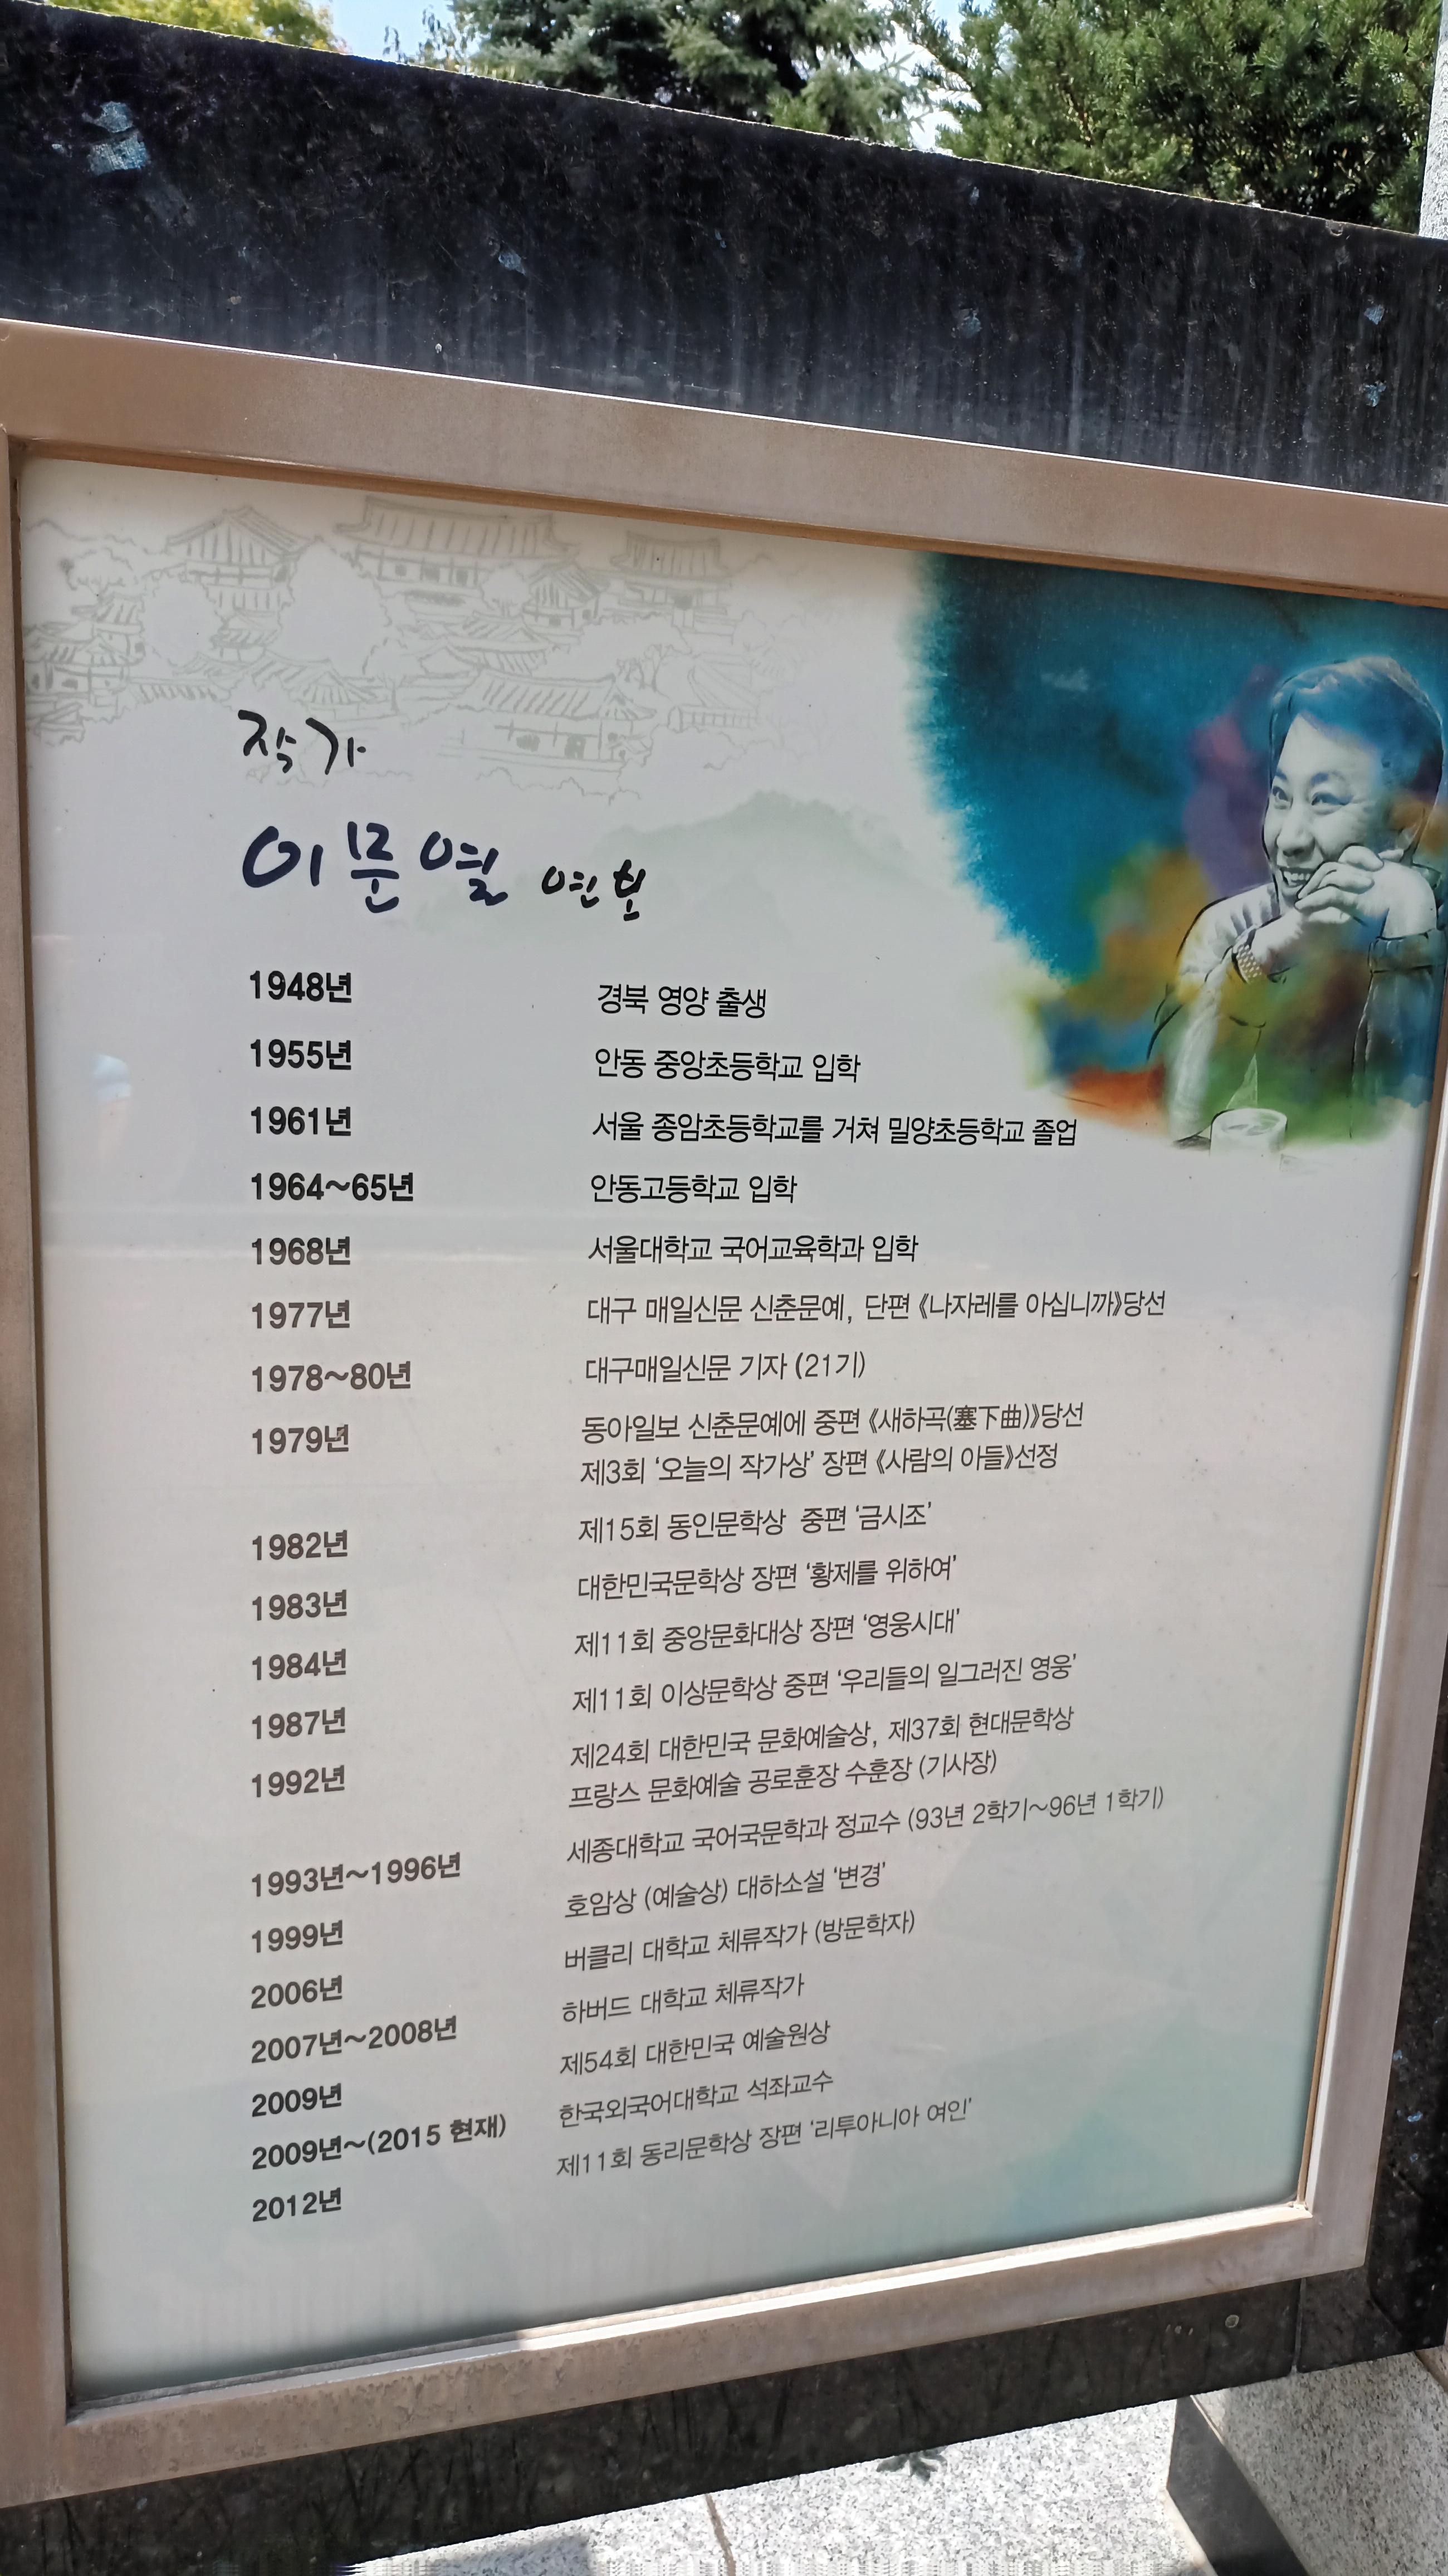 작가
이문열 연보
1948년 경북 영양 출생
1955년 안동 중앙초등학교 입학
1961년 서울 종암초등학교를 거쳐 밀양초등학교 졸업
1964~65년 안동고등학교 입학
1968년 서울대학교 국어교육학과 입학
1977년 대구 매일신문 신춘문예, 단편 《나자레를 아십니까》당선
1978~80년 대구매일신문 기자 (21기)
1979년 동아일보 신춘문예에 중편 《새하곡(塞下曲)》당선
제3회 ‘오늘의 작가상’ 장편 《사람의 아들》선정
1982년 제15회 동인문학상 중편 ‘금시조’
1983년 대한민국문학상 장편 ‘황제를 위하여’
1984년 제11회 중앙문화대상 장편 ‘영웅시대’
1987년 제11회 이상문학상 중편 ‘우리들의 일그러진 영웅’
1992년 제24회 대한민국 문화예술상, 제37회 현대문학상
프랑스 문화예술 공로훈장 수훈장 (기사장)
1993년~1996년 세종대학교 국어국문학과 정교수 (93년 2학기~96년 1학기)
1999년 호암상 (예술상) 대하소설 ‘변경’
2006년 버클리 대학교 체류작가 (방문학자)
2007년~2008년 하버드 대학교 체류작가
2009년 제54회 대한민국 예술원상
2009년~(2015 현재) 한국외국어대학교 석좌교수
2012년 제11회 동리문학상 장편 ‘리투아니아 여인’